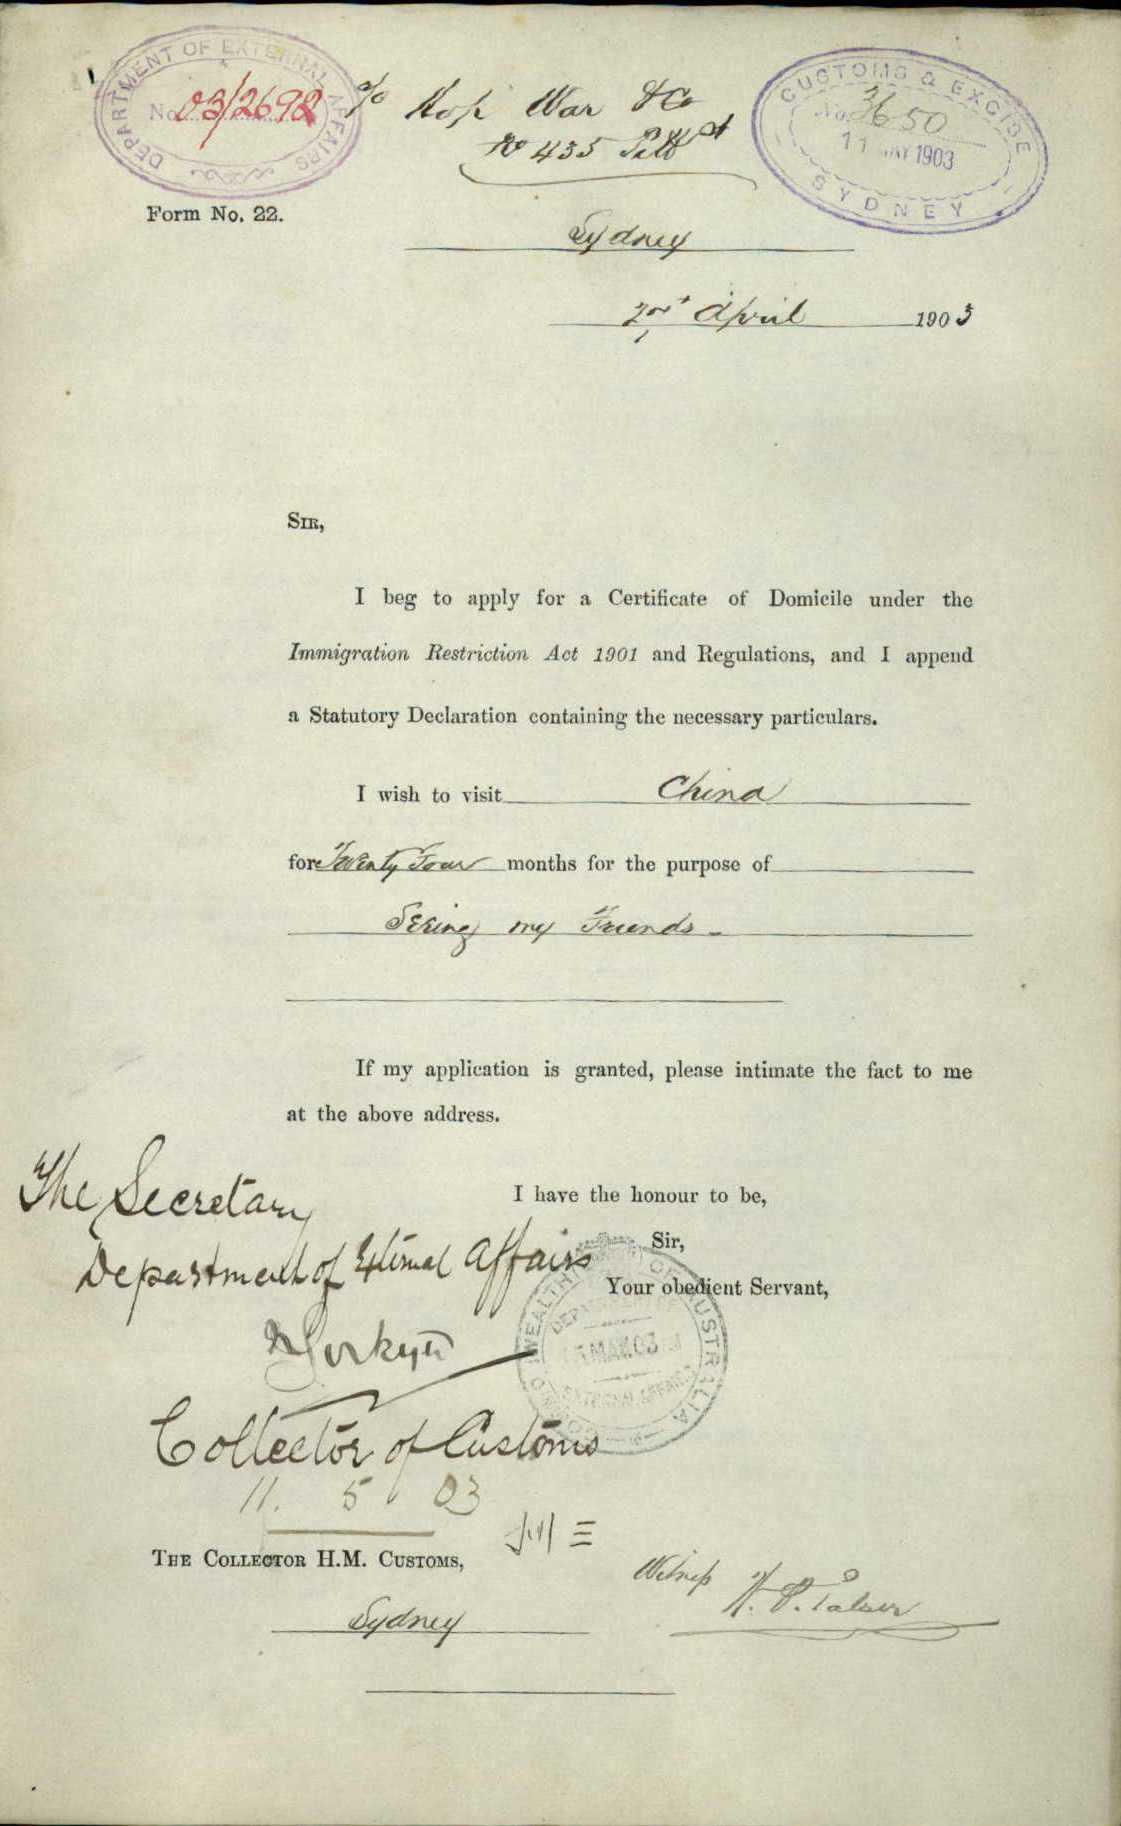 DEPARTMENT OF EXTERNAL AFFAIRS
No. 03/2692
c/o Hop War & Co
No 435 Pitt St
CUSTOMS & EXCISE
No. 3650
11 MAY 1903
SYDNEY
Form No. 22.
Sydney
April 1903
SIR,
I beg to apply for a Certificate of Domicile under the
Immigration Restriction Act 1901 and Regulations, and I append
a Statutory Declaration containing the necessary particulars.
I wish to visit China
for Twenty Four months for the purpose of
Seeing my Friends
If my application is granted, please intimate the fact to me
at the above address.
I have the honour to be,
Sir,
Your obedient Servant,
The Secretary
Department of External Affairs
COMMONWEALTH OF AUSTRALIA
MAY.03
EXTERNAL AFFAIRS
Collector of Customs
11. 5 03
THE COLLECTOR H.M. CUSTOMS,
Sydney
Witness